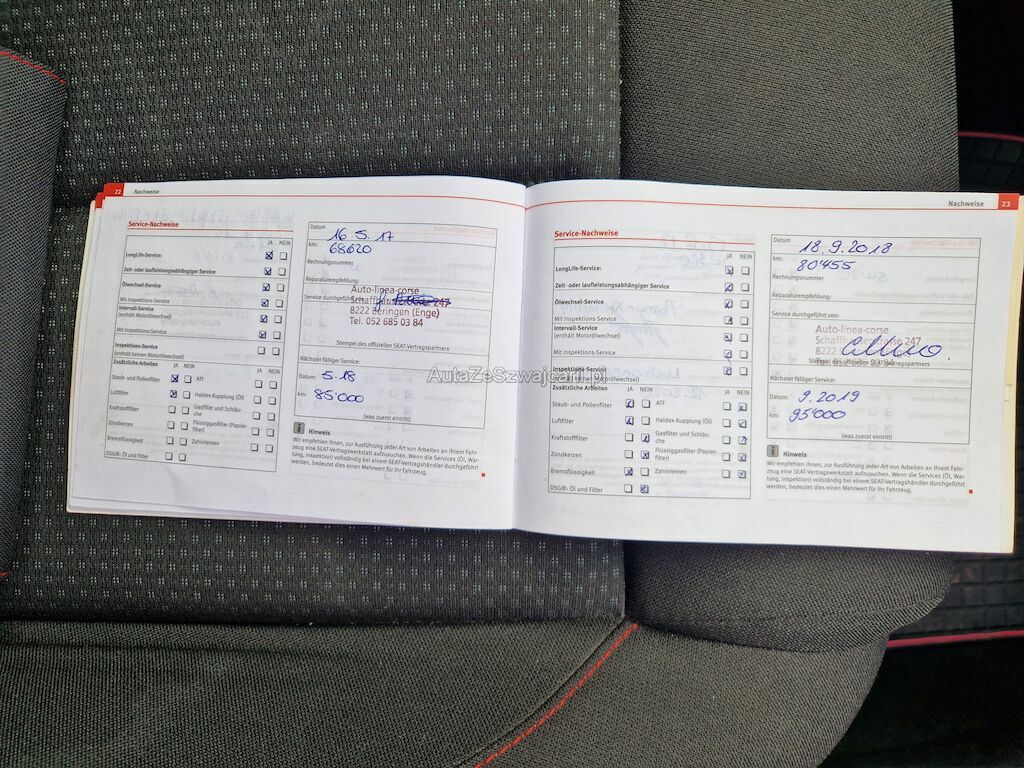 22 Nachweise
Service-Nachweise
JA NEIN
LongLife-Service:
Zeit- oder laufleistungsabhängiger Service
Ölwechsel-Service
Mit Inspektions-Service
Intervall-Service
(enthält Motorölwechsel)
Mit Inspektions-Service
Inspektions-Service
(enthält keinen Motorölwechsel)
Zusätzliche Arbeiten
JA NEIN
Staub- und Pollenfilter
ATF
Luftfilter
Haldex-Kupplung (Öl)
Kraftstofffilter
Gasfilter und Schläu-
che
Zündkerzen
Flüssiggasfilter (Papier-
filter)
Bremsflüssigkeit
Zahnriemen
DSG®: Öl und Filter
Datum 16.5.17
km: 68620
Rechnungsnummer
Reparaturempfehlung:
Service durchgeführt
Auto-linea-corse
Schaffhauserstrasse 247
8222 Beringen (Enge)
Tel. 052 685 03 84
Stempel des offiziellen SEAT-Vertragspartners
Nächster fälliger Service:
Datum: 5.18
km: 85'000
(was zuerst eintritt)
Hinweis
Wir empfehlen Ihnen, zur Ausführung jeder Art von Arbeiten an Ihrem Fahr-
zeug eine SEAT-Vertragswerkstatt aufzusuchen. Wenn die Services (Öl, War-
tung, Inspektion) vollständig bei einem SEAT-Vertragshändler durchgeführt
werden, bedeutet dies einen Mehrwert für Ihr Fahrzeug.
Nachweise 23
Service-Nachweise
JA NEIN
LongLife-Service:
Zeit- oder laufleistungsabhängiger Service
Ölwechsel-Service
Mit Inspektions-Service
Intervall-Service
(enthält Motorölwechsel)
Mit Inspektions-Service
Inspektions-Service
Motorölwechsel)
Zusätzliche Arbeiten
JA NEIN
Staub- und Pollenfilter
ATF
Luftfilter
Haldex-Kupplung (Öl)
Kraftstofffilter
Gasfilter und Schläu-
che
Zündkerzen
Flüssiggasfilter (Papier-
filter)
Bremsflüssigkeit
Zahnriemen
DSG®: Öl und Filter
Datum 18.9.2018
km: 80'455
Rechnungsnummer
Reparaturempfehlung:
Service durchgeführt von:
Auto-linea-corse
Schaffhauserstrasse 247
8222
Tel. 052 685 03 84
SEAT-Vertragspartners
Nächster fälliger Service:
Datum: 9.2019
km: 95'000
(was zuerst eintritt)
Hinweis
Wir empfehlen Ihnen, zur Ausführung jeder Art von Arbeiten an Ihrem Fahr-
zeug eine SEAT-Vertragswerkstatt aufzusuchen. Wenn die Services (Öl, War-
tung, Inspektion) vollständig bei einem SEAT-Vertragshändler durchgeführt
werden, bedeutet dies einen Mehrwert für Ihr Fahrzeug.
AutaZeSzwajcarii.pl